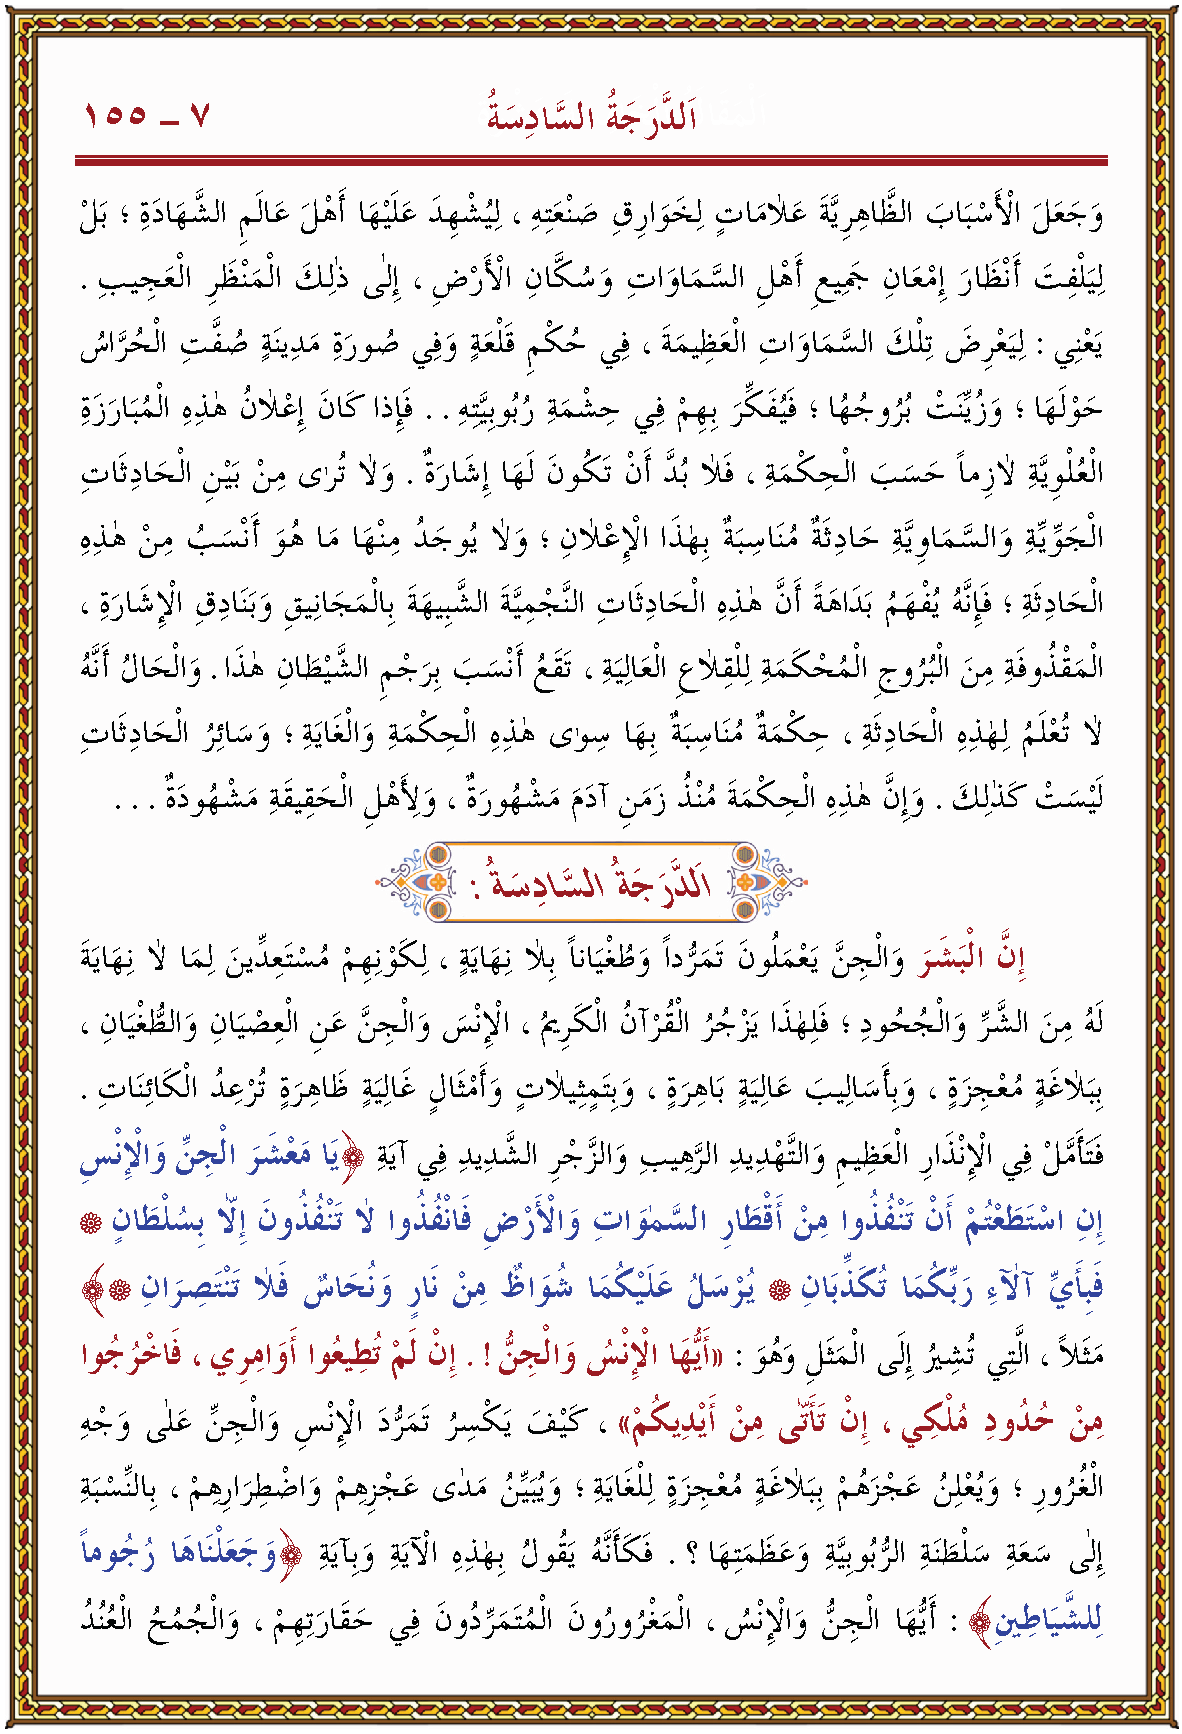 اَلدَّرَجَةُ السَّادِسَةُ ٧ ـ ١٥٥
وَجَعَلَ الْأَسْبَابَ الظَّاهِرِيَّةَ عَلاٰمَاتٍ لِخَوَارِقِ صَنْعَتِهِ ، لِيُشْهِدَ عَلَيْهَا أَهْلَ عَالَمِ الشَّهَادَةِ ؛ بَلْ
لِيَلْفِتَ أَنْظَارَ إِمْعَانِ جَمِيعِ أَهْلِ السَّمَاوَاتِ وَسُكَّانِ الْأَرْضِ ، إِلٰى ذٰلِكَ الْمَنْظَرِ الْعَجِيبِ .
يَعْنِي : لِيَعْرِضَ تِلْكَ السَّمَاوَاتِ الْعَظِيمَةَ ، فِي حُكْمِ قَلْعَةٍ وَفِي صُورَةِ مَدِينَةٍ صُفَّتِ الْحُرَّاسُ
حَوْلَهَا ؛ وَزُيِّنَتْ بُرُوجُهَا ؛ فَيُفَكِّرَ بِهِمْ فِي حِشْمَةِ رُبُوبِيَّتِهِ . . فَإِذَا كَانَ إِعْلاٰنُ هٰذِهِ الْمُبَارَزَةِ
الْعُلْوِيَّةِ لاٰزِماً حَسَبَ الْحِكْمَةِ ، فَلاٰ بُدَّ أَنْ تَكُونَ لَهَا إِشَارَةٌ . وَلاٰ تُرٰى مِنْ بَيْنِ الْحَادِثَاتِ
الْجَوِّيَّةِ وَالسَّمَاوِيَّةِ حَادِثَةٌ مُنَاسِبَةٌ بِهٰذَا الْإِعْلاٰنِ ؛ وَلاٰ يُوجَدُ مِنْهَا مَا هُوَ أَنْسَبُ مِنْ هٰذِهِ
الْحَادِثَةِ ؛ فَإِنَّهُ يُفْهَمُ بَدَاهَةً أَنَّ هٰذِهِ الْحَادِثَاتِ النَّجْمِيَّةَ الشَّبِيهَةَ بِالْمَجَانِيقِ وَبَنَادِقِ الْإِشَارَةِ ،
الْمَقْذُوفَةِ مِنَ الْبُرُوجِ الْمُحْكَمَةِ لِلْقِلاٰعِ الْعَالِيَةِ ، تَقَعُ أَنْسَبَ بِرَجْمِ الشَّيْطَانِ هٰذَا . وَالْحَالُ أَنَّهُ
لاٰ تُعْلَمُ لِهٰذِهِ الْحَادِثَةِ ، حِكْمَةٌ مُنَاسِبَةٌ بِهَا سِوٰى هٰذِهِ الْحِكْمَةِ وَالْغَايَةِ ؛ وَسَائِرُ الْحَادِثَاتِ
لَيْسَتْ كَذٰلِكَ . وَإِنَّ هٰذِهِ الْحِكْمَةَ مُنْذُ زَمَنِ آدَمَ مَشْهُورَةٌ ، وَلِأَهْلِ الْحَقِيقَةِ مَشْهُودَةٌ . . .
اَلدَّرَجَةُ السَّادِسَةُ :
إِنَّ الْبَشَرَ وَالْجِنَّ يَعْمَلُونَ تَمَرُّداً وَطُغْيَاناً بِلاٰ نِهَايَةٍ ، لِكَوْنِهِمْ مُسْتَعِدِّينَ لِمَا لاٰ نِهَايَةَ
لَهُ مِنَ الشَّرِّ وَالْجُحُودِ ؛ فَلِهٰذَا يَزْجُرُ الْقُرْآنُ الْكَرِيمُ ، الْإِنْسَ وَالْجِنَّ عَنِ الْعِصْيَانِ وَالطُّغْيَانِ ،
بِبَلاٰغَةٍ مُعْجِزَةٍ ، وَبِأَسَالِيبَ عَالِيَةٍ بَاهِرَةٍ ، وَبِتَمْثِيلاٰتٍ وَأَمْثَالٍ غَالِيَةٍ ظَاهِرَةٍ تُرْعِدُ الْكَائِنَاتِ .
فَتَأَمَّلْ فِي الْإِنْذَارِ الْعَظِيمِ وَالتَّهْدِيدِ الرَّهِيبِ وَالزَّجْرِ الشَّدِيدِ فِي آيَةِ ﴿يَا مَعْشَرَ الْجِنِّ وَالْإِنْسِ
إِنِ اسْتَطَعْتُمْ أَنْ تَنْفُذُوا مِنْ أَقْطَارِ السَّمٰوَاتِ وَالْأَرْضِ فَانْفُذُوا لاٰ تَنْفُذُونَ إِلاَّ بِسُلْطَانٍ ۞
فَبِأَيِّ آلاٰۤءِ رَبِّكُمَا تُكَذِّبَانِ ۞ يُرْسَلُ عَلَيْكُمَا شُوَاظٌ مِنْ نَارٍ وَنُحَاسٌ فَلاٰ تَنْتَصِرَانِ ۞﴾
مَثَلاً ، الَّتِي تُشِيرُ إِلَى الْمَثَلِ وَهُوَ : «أَيُّهَا الْإِنْسُ وَالْجِنُّ ! . إِنْ لَمْ تُطِيعُوا أَوَامِرِي ، فَاخْرُجُوا
مِنْ حُدُودِ مُلْكِي ، إِنْ تَأَتّٰى مِنْ أَيْدِيكُمْ» ، كَيْفَ يَكْسِرُ تَمَرُّدَ الْإِنْسِ وَالْجِنِّ عَلٰى وَجْهِ
الْغُرُورِ ؛ وَيُعْلِنُ عَجْزَهُمْ بِبَلاٰغَةٍ مُعْجِزَةٍ لِلْغَايَةِ ؛ وَيُبَيِّنُ مَدٰى عَجْزِهِمْ وَاضْطِرَارِهِمْ ، بِالنِّسْبَةِ
إِلٰى سَعَةِ سَلْطَنَةِ الرُّبُوبِيَّةِ وَعَظَمَتِهَا ؟ . فَكَأَنَّهُ يَقُولُ بِهٰذِهِ الْآيَةِ وَبِآيَةِ ﴿وَجَعَلْنَاهَا رُجُوماً
لِلشَّيَاطِينِ﴾ : أَيُّهَا الْجِنُّ وَالْإِنْسُ ، الْمَغْرُورُونَ الْمُتَمَرِّدُونَ فِي حَقَارَتِهِمْ ، وَالْجُمُحُ الْعُنُدُ